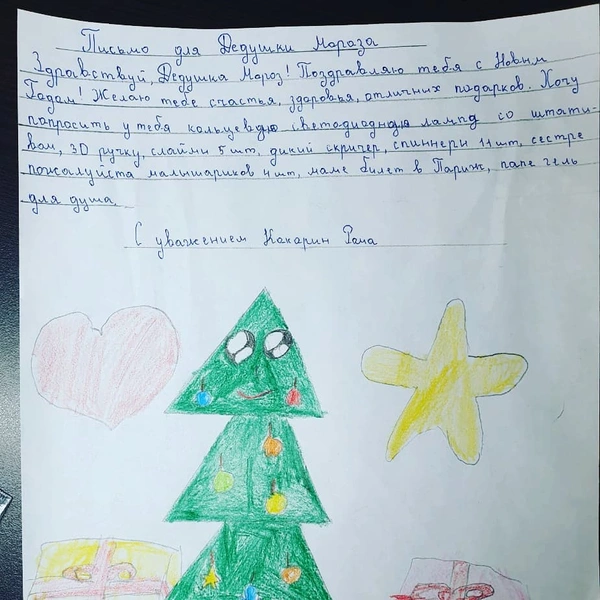 Письмо для Дедушки Мороза
Здравствуй, Дедушка Мороз! Поздравляю тебя с Новым
Годом! Желаю тебе счастья, здоровья, отличных подарков. Хочу
попросить у тебя кольцевую светодиодную лампу со штати-
вом, 3D ручку, слаймы 5 шт, дикий скричер, спиннеры 11 шт, сестре
пожалуйста малышариков 4 шт, маме билет в Париж, папе гель
для душа.
С уважением Какарин Рома